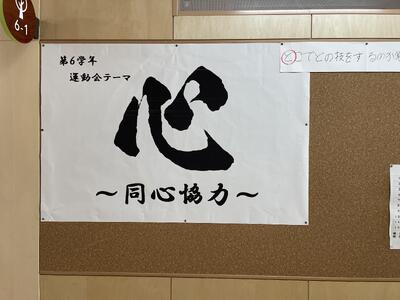 6-1
第6学年
運動会テーマ
心
〜同心協力〜
どこでどの技をするのか